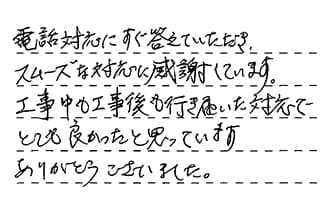 電話対応にすぐ答えていただき、
スムーズな対応に感謝しています。
工事中も工事後も行き届いた対応で
とても良かったと思っています
ありがとうございました。